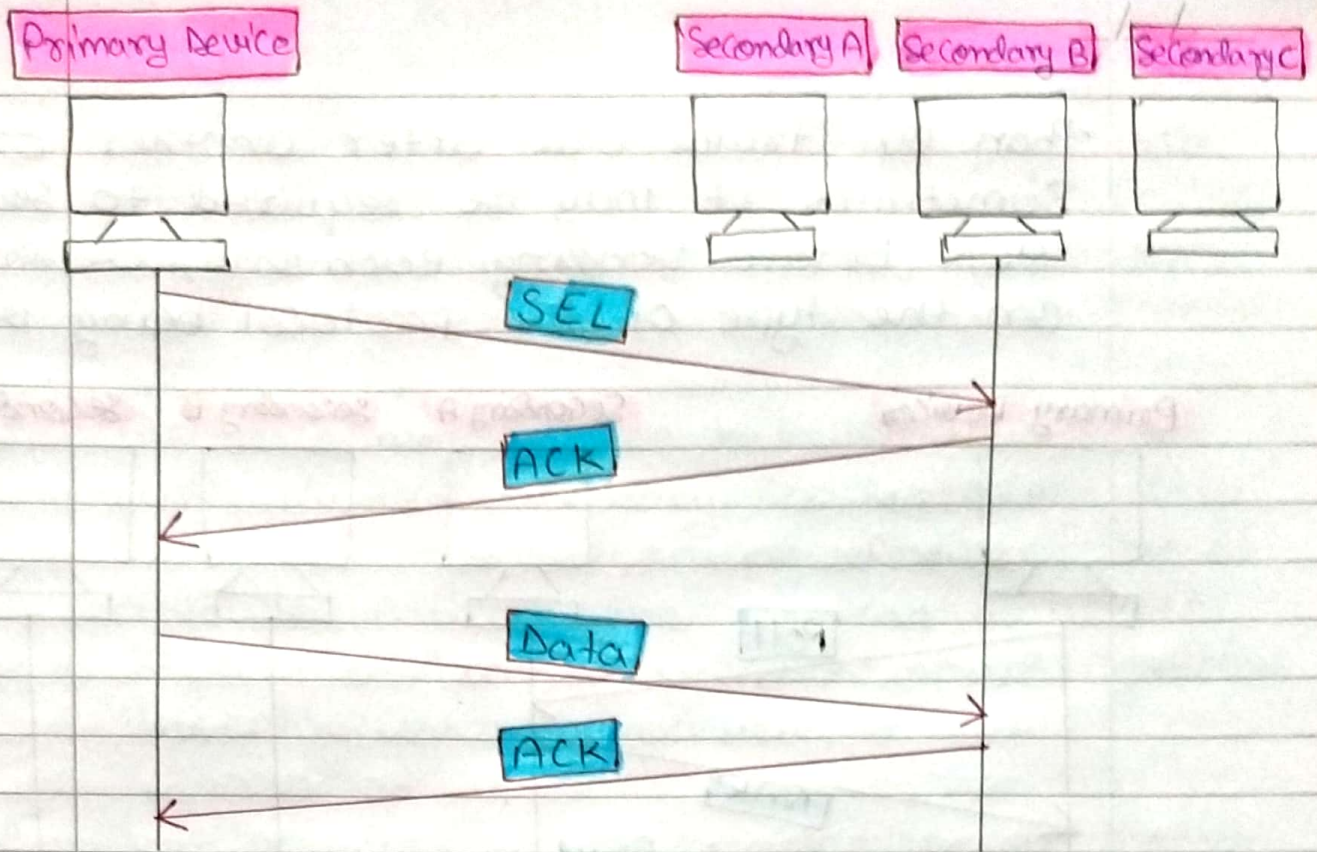 Primary Device Secondary A Secondary B Secondary C
SEL
ACK
Data
ACK